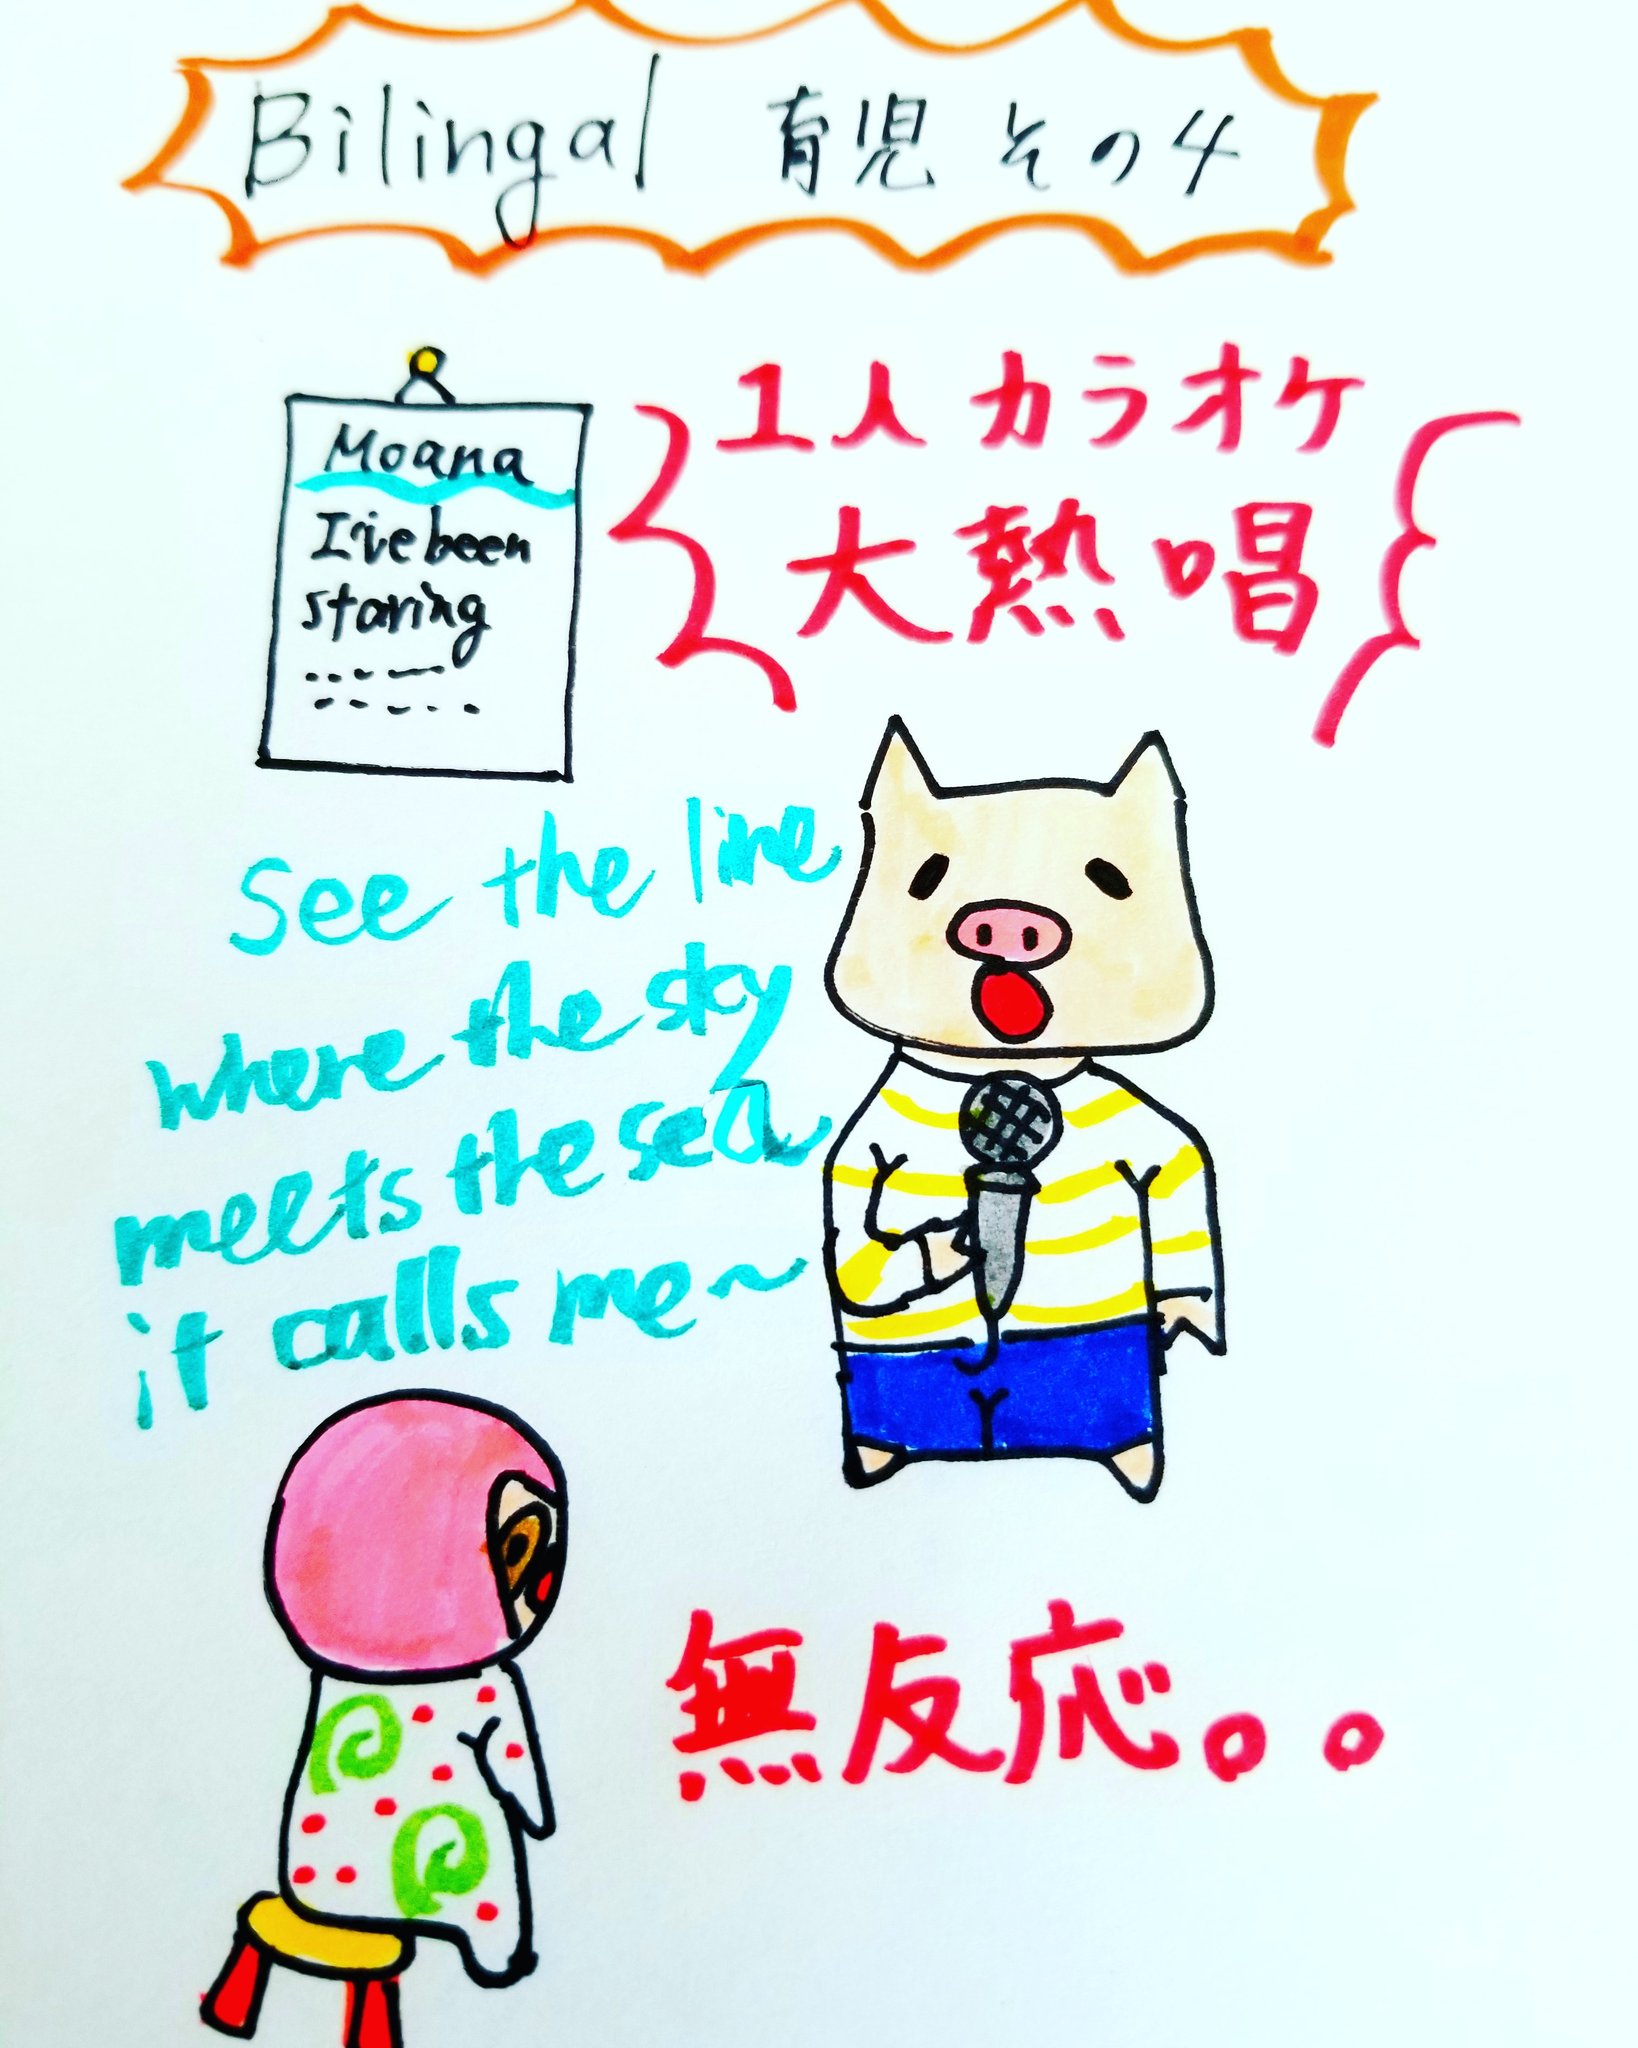 Bilingal 育児 その4
Moana
I've been
staring
1人カラオケ
大熱唱
See the line
where the sky
meets the sea
it calls me~
無反応。。